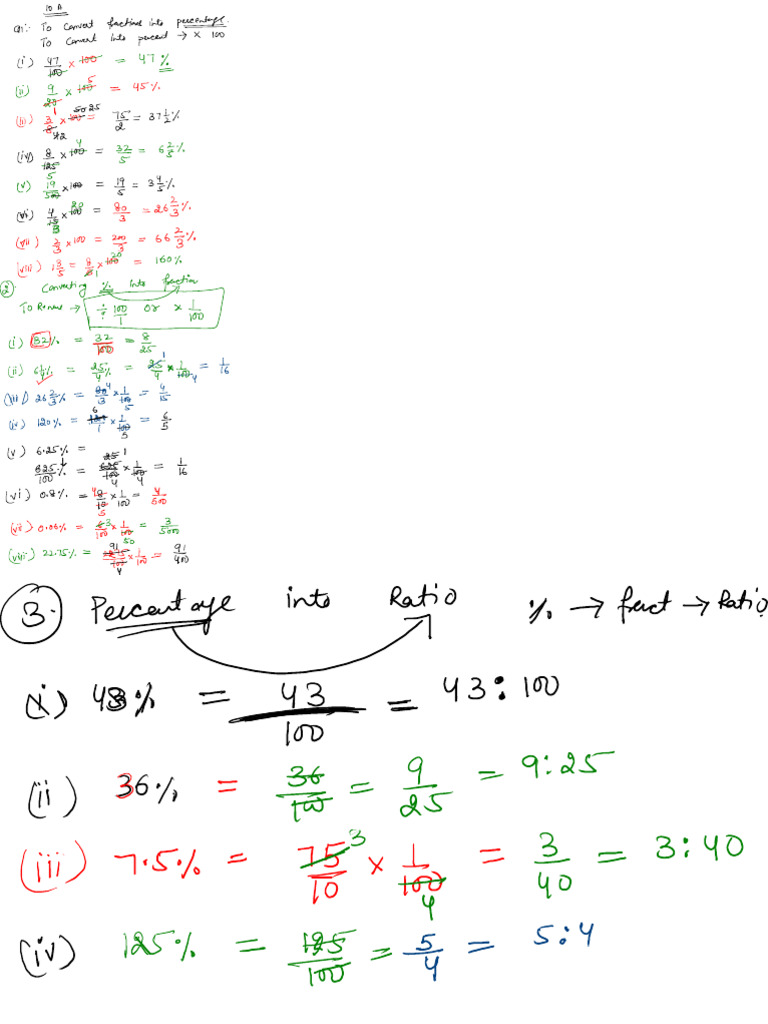 10 A
Q1:- To Convert fractions into percentage.
To Convert into percent → × 100
(i) 47/100 × 100 = 47%
(ii) 9/20 × 100 5 = 45%
(iii) 3/8 × 100 50 25 = 75/2 = 37 1/2 %
(iv) 8/125 × 100 4 = 32/5 = 6 2/5 %
(v) 19/500 × 100 = 19/5 = 3 4/5 %
(vi) 4/15 × 100 20 = 80/3 = 26 2/3 %
(vii) 2/3 × 100 = 200/3 = 66 2/3 %
(viii) 1 3/5 = 8/5 × 100 20 = 160%
2 Converting % into fraction
To Remove → ÷ 100/1 or × 1/100
(i) 32% = 32/100 = 8/25
(ii) 6 1/4 % = 25/4 % = 25/4 × 1/100 = 1/16
(iii) 26 2/3 % = 80/3 × 1/100 = 4/15
(iv) 120% = 120/1 × 1/100 = 6/5
(v) 6.25% =
625/100 % = 625/100 × 1/100 = 1/16
(vi) 0.8% = 8/10 × 1/100 = 4/500
(vii) 0.06% = 6/100 × 1/100 = 3/5000
(viii) 22.75% = 2275/100 × 1/100 = 91/400
3. Percentage into Ratio % → fract → Ratio
(i) 43% = 43/100 = 43:100
(ii) 36% = 36/100 = 9/25 = 9:25
(iii) 7.5% = 75/10 × 1/100 = 3/40 = 3:40
(iv) 125% = 125/100 = 5/4 = 5:4